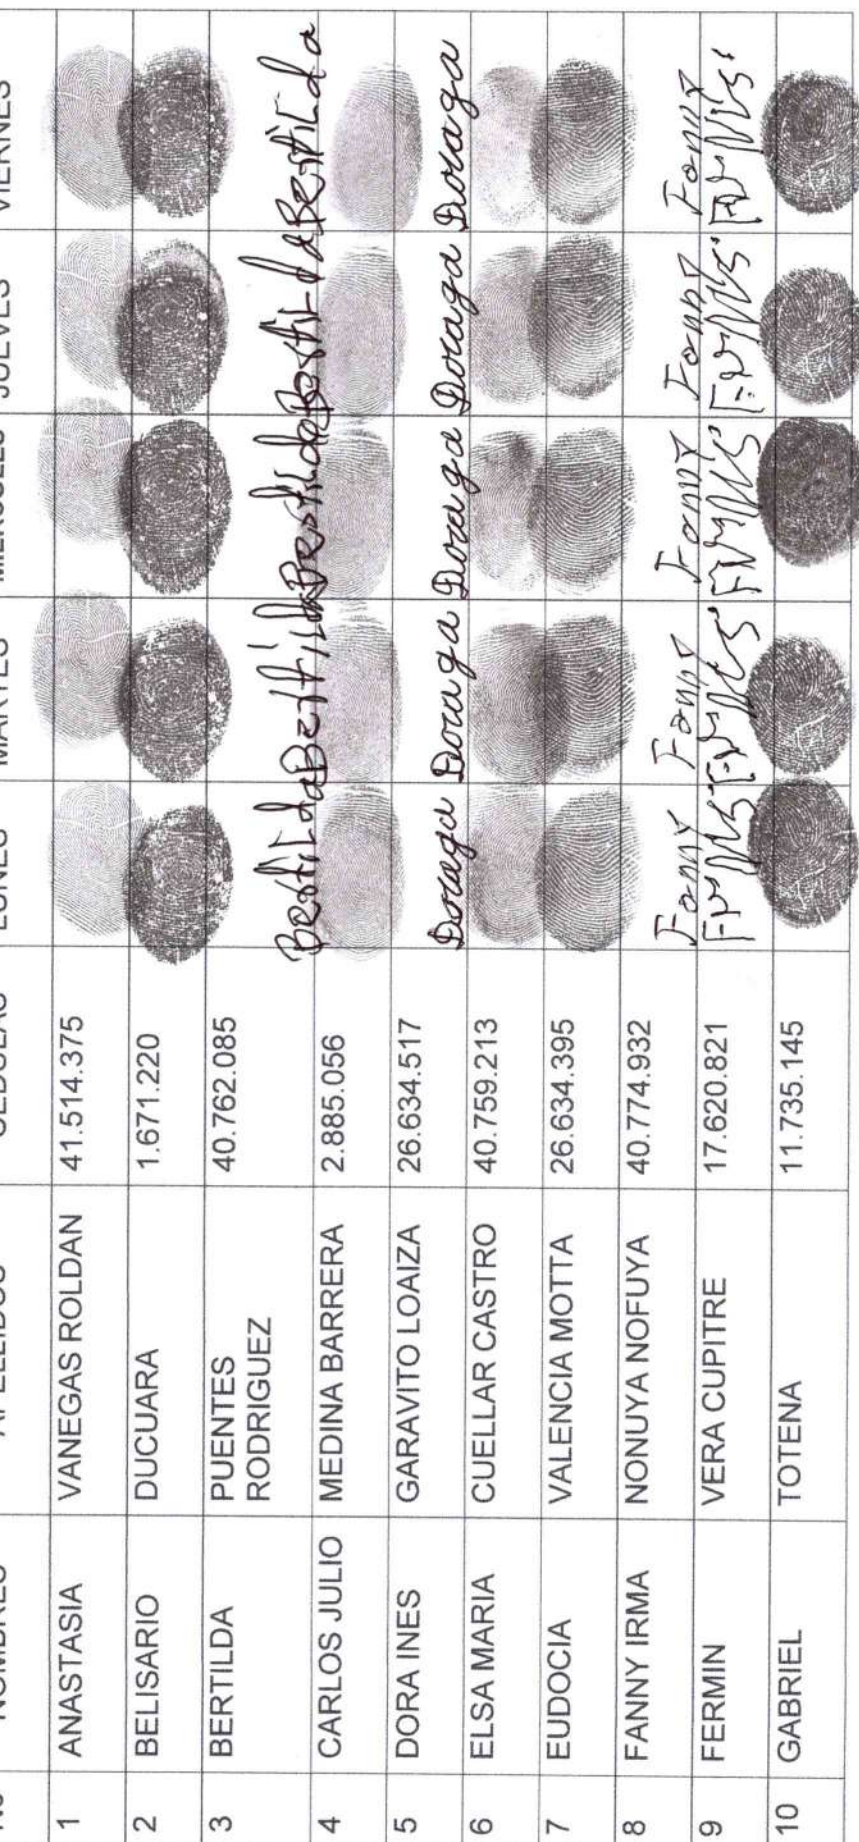 No NOMBRES APELLIDOS CEDULAS LUNES MARTES MIERCOLES JUEVES VIERNES
1 ANASTASIA VANEGAS ROLDAN 41.514.375
2 BELISARIO DUCUARA 1.671.220
3 BERTILDA PUENTES RODRIGUEZ 40.762.085 Bertilda Bertilda Bertilda Bertilda Bertilda
4 CARLOS JULIO MEDINA BARRERA 2.885.056
5 DORA INES GARAVITO LOAIZA 26.634.517 Doraga Doraga Doraga Doraga Doraga
6 ELSA MARIA CUELLAR CASTRO 40.759.213
7 EUDOCIA VALENCIA MOTTA 26.634.395
8 FANNY IRMA NONUYA NOFUYA 40.774.932 Fanny Fanny Fanny Fanny Fanny
9 FERMIN VERA CUPITRE 17.620.821
10 GABRIEL TOTENA 11.735.145